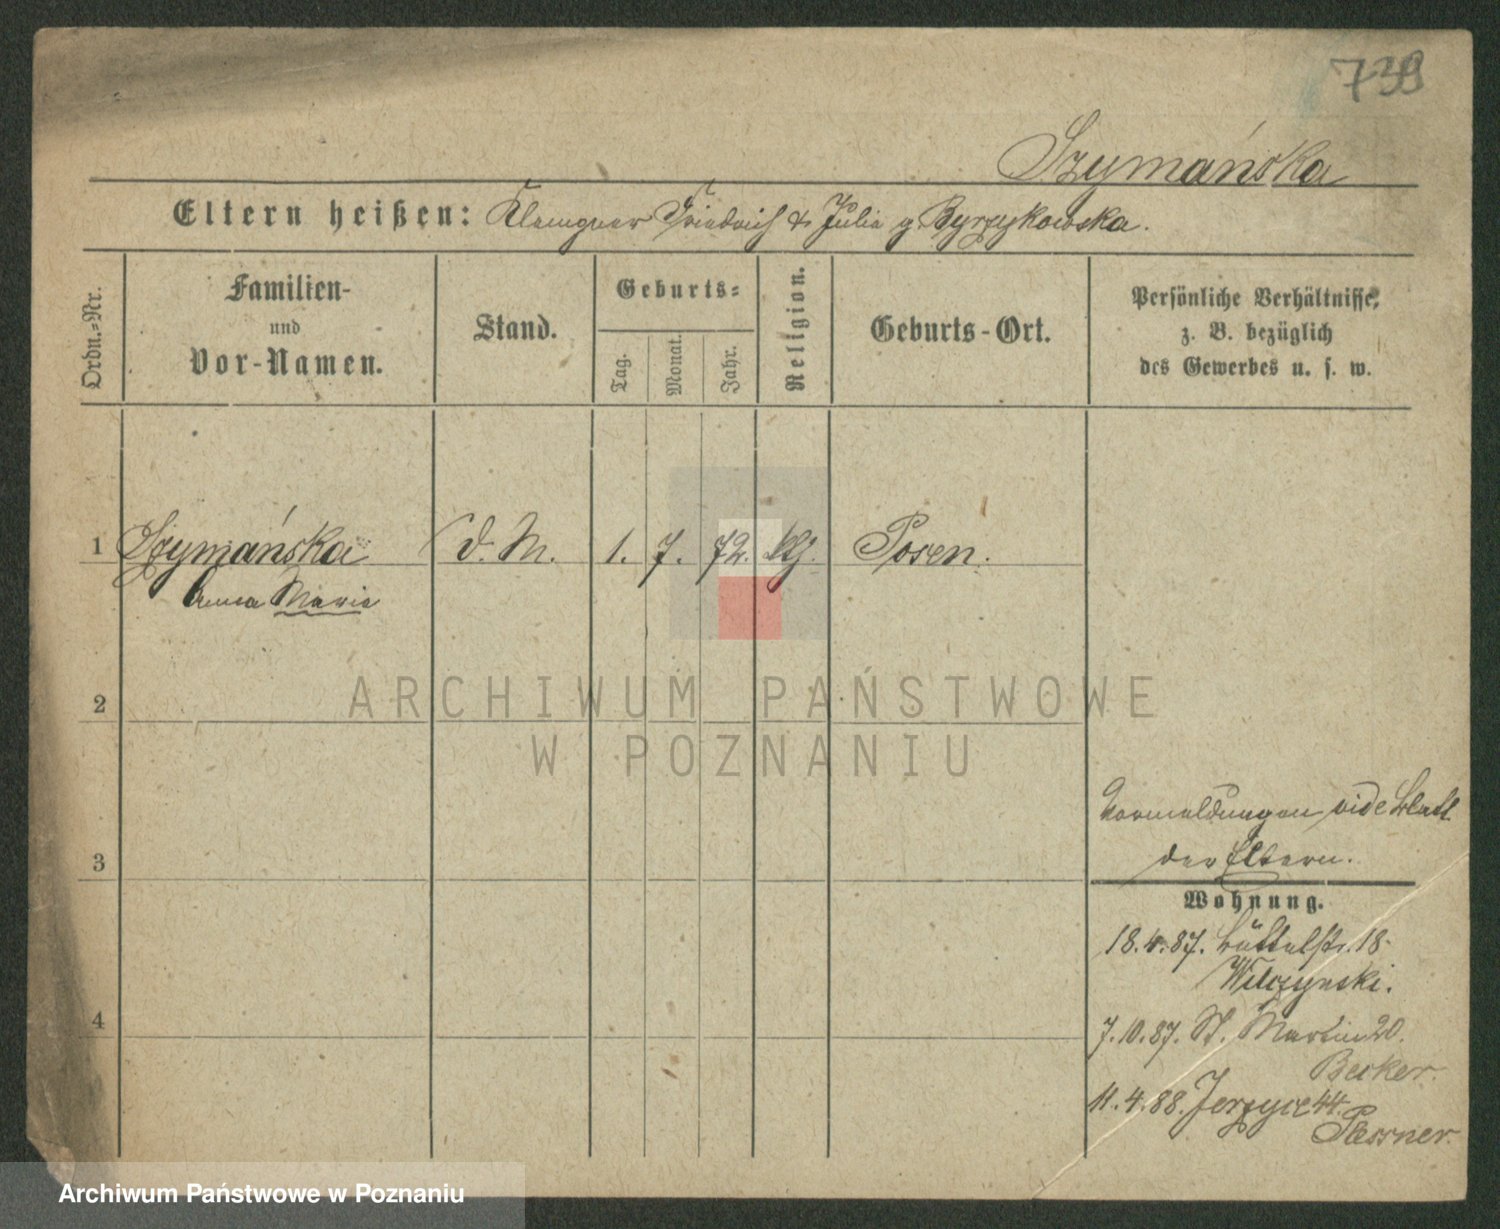 739
Szymańska
Eltern heißen: Klemgner Friedrich & Julie g. Byrzykowska.
Ordn.-Nr.
Familien-
und
Vor-Namen.
Stand.
Geburts-
Tag.
Monat.
Jahr.
Religion.
Geburts-Ort.
Persönliche Verhältnisse,
z. B. bezüglich
des Gewerbes u. s. w.
1 Szymańska d. M. 1. 7. 72. ktj. Posen.
Anna Maria
2
3
4
Vormeldungen vide Blatt
der Eltern.
Wohnung.
18.4.87. Büttelstr. 18
Wilczynski.
7.10.87. St. Martin 20.
Becker.
11.4.88. Jerzyce 44.
Plessner.
ARCHIWUM PAŃSTWOWE
W POZNANIU
Archiwum Państwowe w Poznaniu